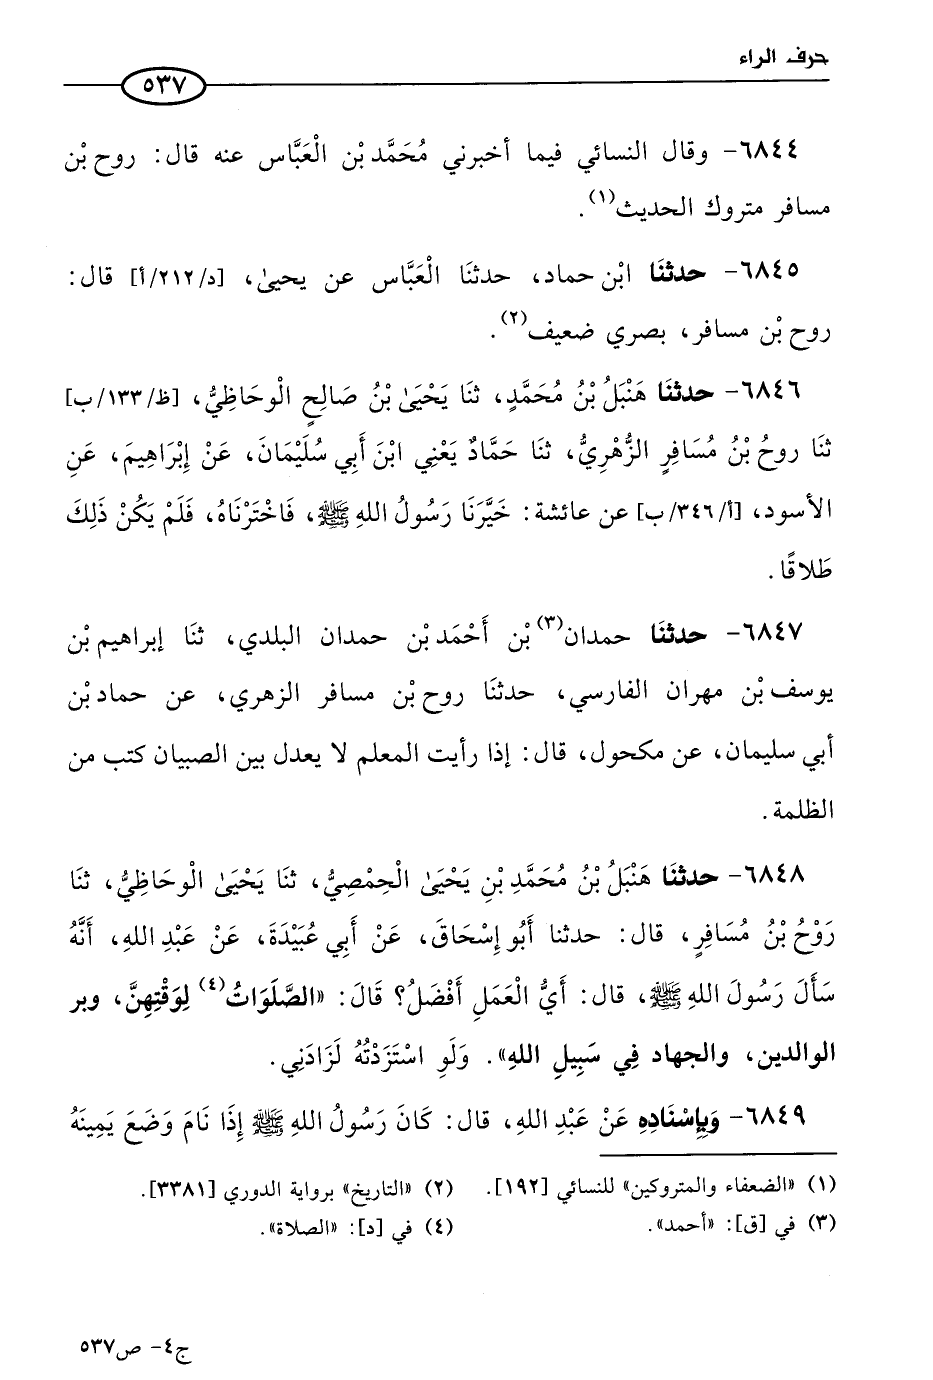 حرف الراء
٥٣٧
٦٨٤٤- وقال النسائي فيما أخبرني مُحَمَّد بْن الْعَبَّاس عنه قال: روح بْن
مسافر متروك الحديث(١).
٦٨٤٥- حدثنَا ابْن حماد، حدثنَا الْعَبَّاس عن يحيىٰ، [د/٢١٢/أ] قال:
روح بْن مسافر، بصري ضعيف(٢).
٦٨٤٦- حدثنَا هَنْبَلُ بْنُ مُحَمَّدٍ، ثنَا يَحْيَىٰ بْنُ صَالِحٍ الْوحَاظِيُّ، [ظ/١٣٣/ب]
ثنَا روحُ بْنُ مُسَافِرٍ الزُّهْرِيُّ، ثنَا حَمَّادٌ يَعْنِي ابْنَ أَبِي سُلَيْمَانَ، عَنْ إِبْرَاهِيمَ، عَنِ
الأسود، [أ/٣٤٦/ب] عن عائشة: خَيَّرَنَا رَسُولُ اللهِ ﷺ، فَاخْتَرْنَاهُ، فَلَمْ يَكُنْ ذَلِكَ
طَلاقًا.
٦٨٤٧- حدثنَا حمدان(٣) بْن أَحْمَد بْن حمدان البلدي، ثنَا إبراهيم بْن
يوسف بْن مهران الفارسي، حدثنَا روح بْن مسافر الزهري، عن حماد بْن
أبي سليمان، عن مكحول، قال: إذا رأيت المعلم لا يعدل بين الصبيان كتب من
الظلمة.
٦٨٤٨- حدثنَا هَنْبَلُ بْنُ مُحَمَّدِ بْنِ يَحْيَىٰ الْحِمْصِيُّ، ثنَا يَحْيَىٰ الْوحَاظِيُّ، ثنَا
رَوْحُ بْنُ مُسَافِرٍ، قال: حدثنا أَبُو إِسْحَاقَ، عَنْ أَبِي عُبَيْدَةَ، عَنْ عَبْدِ اللهِ، أَنَّهُ
سَأَلَ رَسُولَ اللهِ ﷺ، قال: أَيُّ الْعَمَلِ أَفْضَلُ؟ قَالَ: «الصَّلَوَاتُ(٤) لِوَقْتِهِنَّ، وبر
الوالدين، والجهاد فِي سَبِيلِ اللهِ». وَلَوِ اسْتَزَدْتُهُ لَزَادَنِي.
٦٨٤٩- وَبِإِسْنَادِهِ عَنْ عَبْدِ اللهِ، قال: كَانَ رَسُولُ اللهِ ﷺ إِذَا نَامَ وَضَعَ يَمِينَهُ
(١) «الضعفاء والمتروكين» للنسائي [١٩٢]. (٢) «التاريخ» برواية الدوري [٣٣٨١].
(٣) في [ق]: «أحمد». (٤) في [د]: «الصلاة».
ج٤- ص٥٣٧